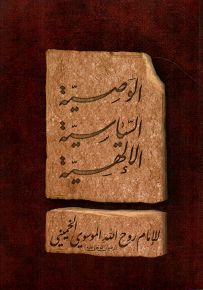 الوصيّة
السّياسيّة
الإلهيّة
للإمام روح اللّه الموسوي الخميني